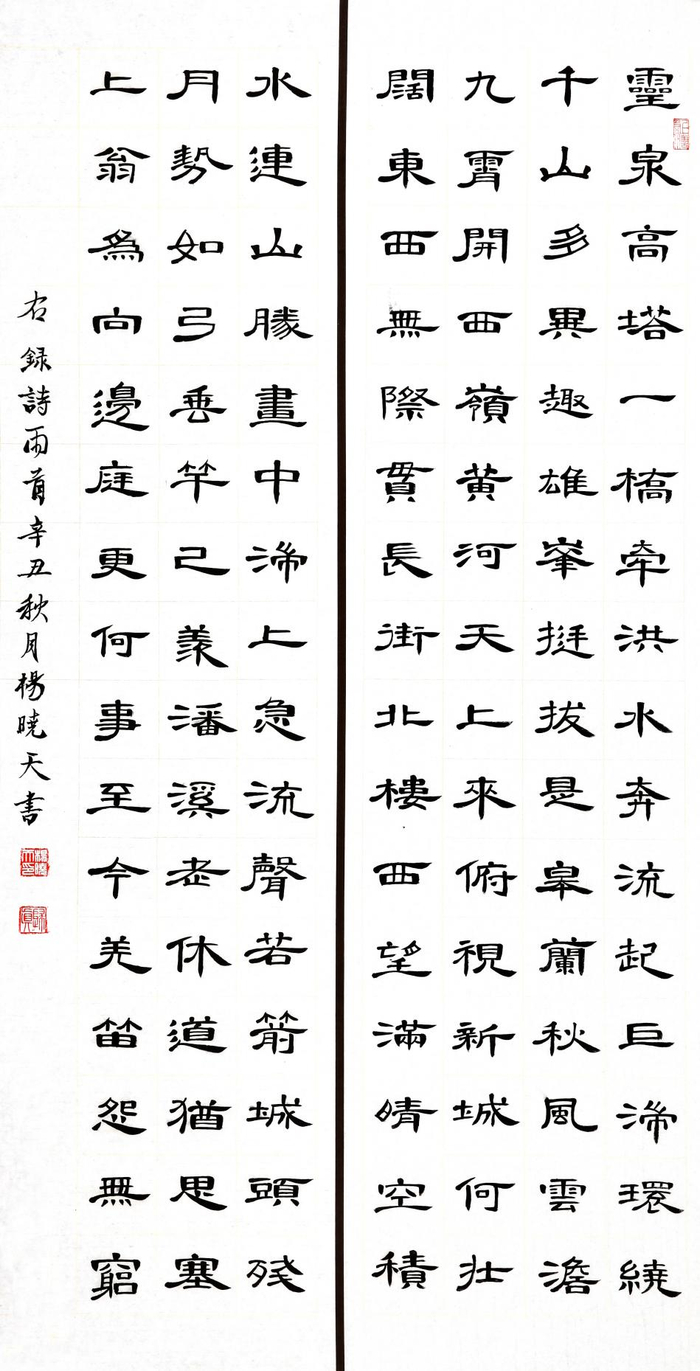 靈泉高塔一橋牵洪水奔流起巨渧環繞
千山多異趣雄峯挺拔是皋蘭秋風雲澹
九霄開西嶺黄河天上來俯視新城何壯
闊東西無際貫長街北樓西望滿晴空積
水連山勝畫中渧上急流聲若箭城頭殘
月勢如弓垂竿已羨潘溪老休道猶思塞
上翁為向邊庭更何事至今羌笛怨無窮
右録詩两首辛丑秋月楊曉天書